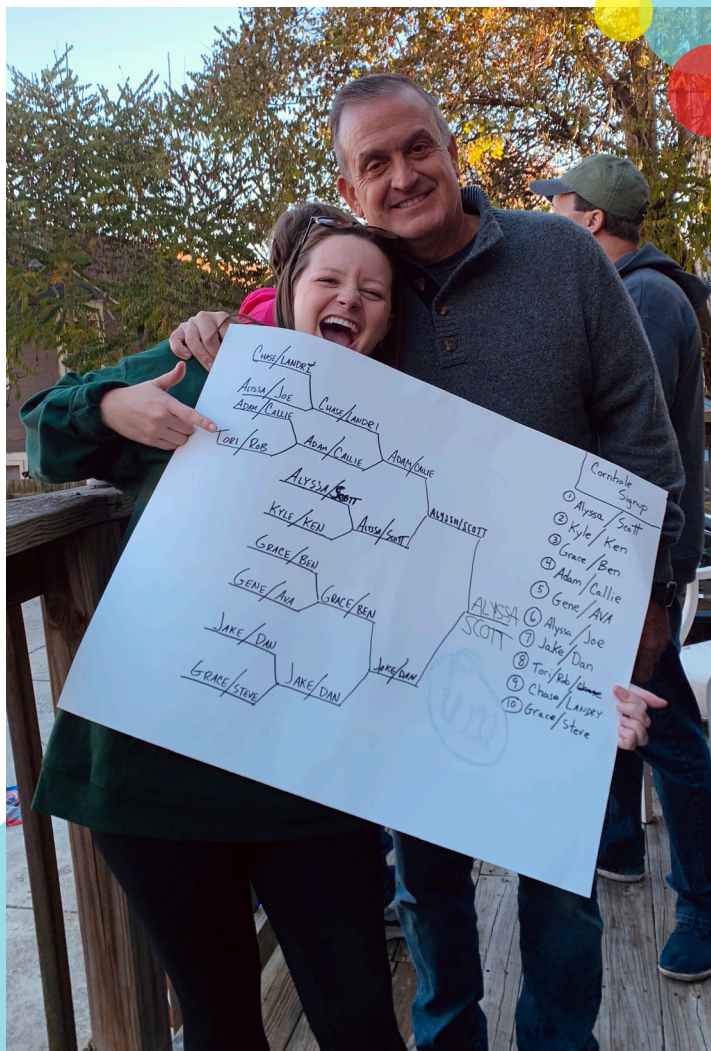 CHASE/LANDRY
ALYSSA/JOE
ADAM/CALLIE
TORI/ROB
CHASE/LANDRI
ADAM/CALLIE
ADAM/CALLIE
ALYSSA/SCOTT
KYLE/KEN
ALYSSA/SCOTT
ALYSSA/SCOTT
GRACE/BEN
GENE/AVA
GRACE/BEN
JAKE/DAN
GRACE/STEVE
JAKE/DAN
JAKE/DAN
ALYSSA
SCOTT
Cornhole
Signup
① Alyssa/Scott
② Kyle/Ken
③ Grace/Ben
④ Adam/Callie
⑤ Gene/AVA
⑥ Alyssa/Joe
⑦ Jake/Dan
⑧ Tori/Rob/
⑨ Chase/LANDRY
⑩ Grace/Steve